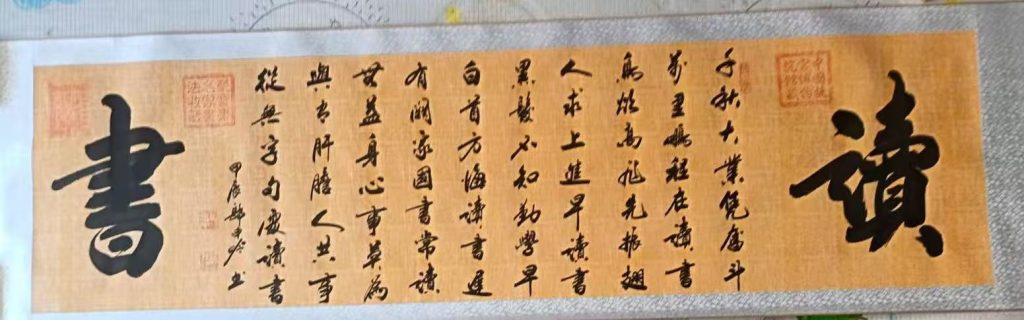 讀
千秋大業凭奮斗
萬里鵬程在讀書
鳥欲高飛先振翅
人求上進早讀書
黑髮不知勤學早
白首方悔讀書遲
有關家國書常讀
無益身心事莫為
與有肝膽人共事
從無字句處讀書
甲辰
書
書